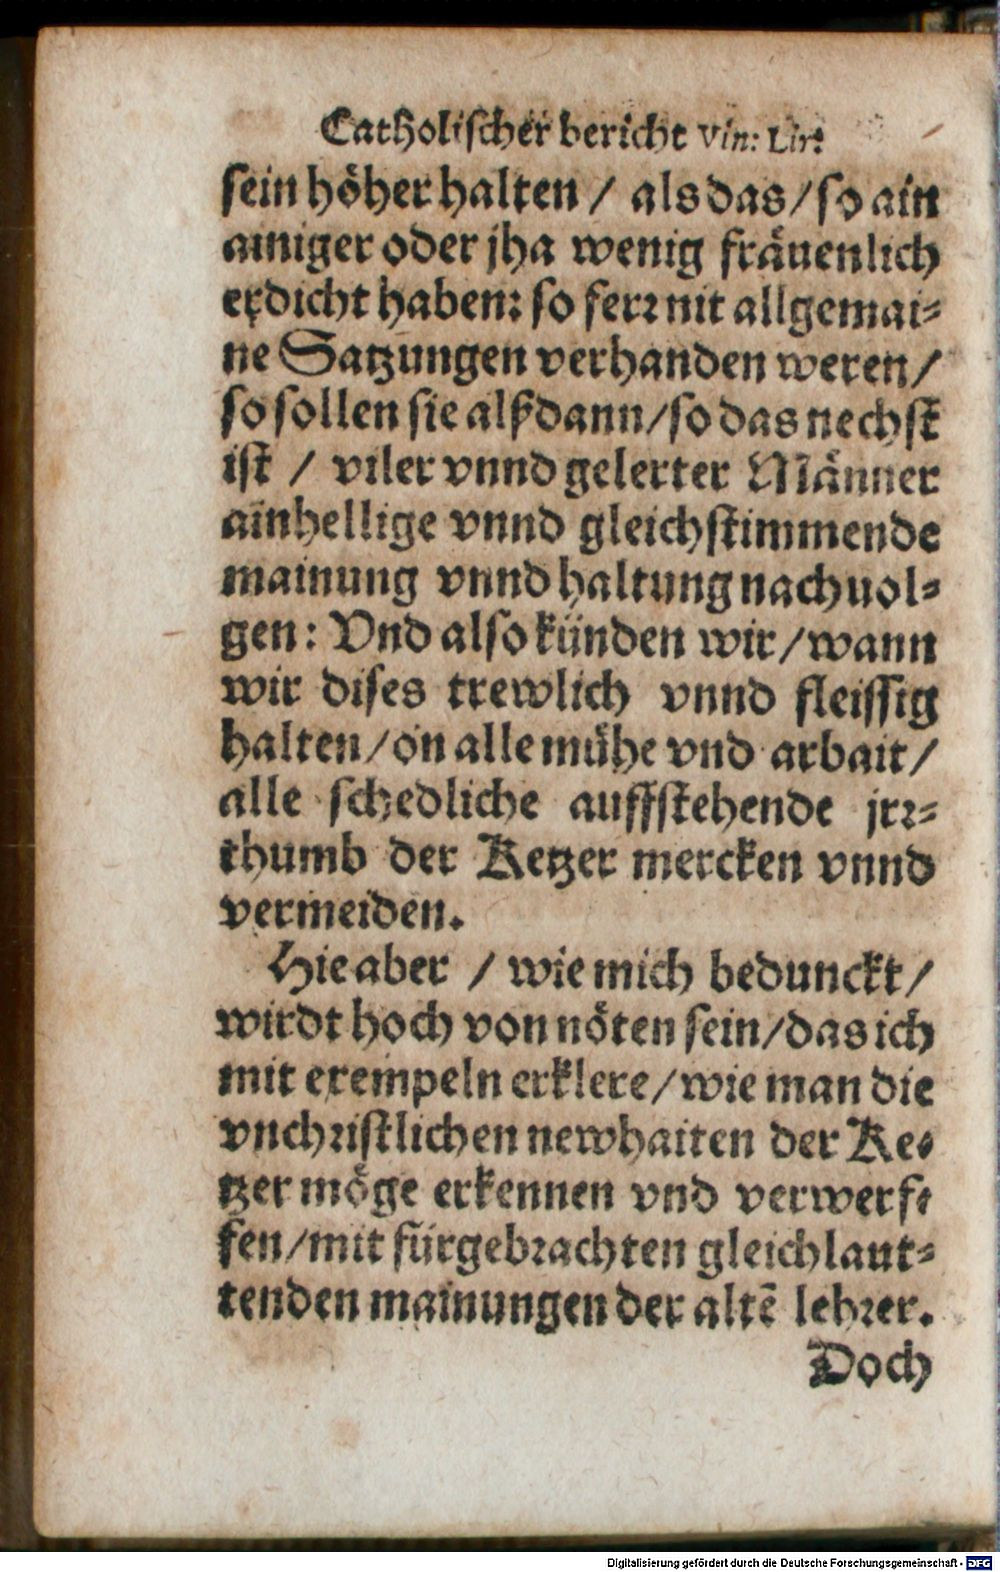 Catholischer bericht Vin: Lir:
sein höher halten / als das / so ain
ainiger oder jha wenig fräuenlich
erdicht haben: so ferr nit allgemai-
ne Satzungen verhanden weren /
so sollen sie alßdann / so das nechst
ist / viler vnnd gelerter Männer
ainhellige vnnd gleichstimmende
mainung vnnd haltung nachuol-
gen: Vnd also künden wir / wann
wir dises trewlich vnnd fleissig
halten / on alle mühe vnd arbait /
alle schedliche auffstehende jrr-
thumb der Ketzer mercken vnnd
vermeiden.
Hie aber / wie mich bedunckt /
wirdt hoch von nöten sein / das ich
mit exempeln erklere / wie man die
vnchristlichen newhaiten der Ke-
tzer möge erkennen vnd verwerf-
fen / mit fürgebrachten gleichlaut-
tenden mainungen der altẽ lehrer.
Doch
Digitalisierung gefördert durch die Deutsche Forschungsgemeinschaft - DFG